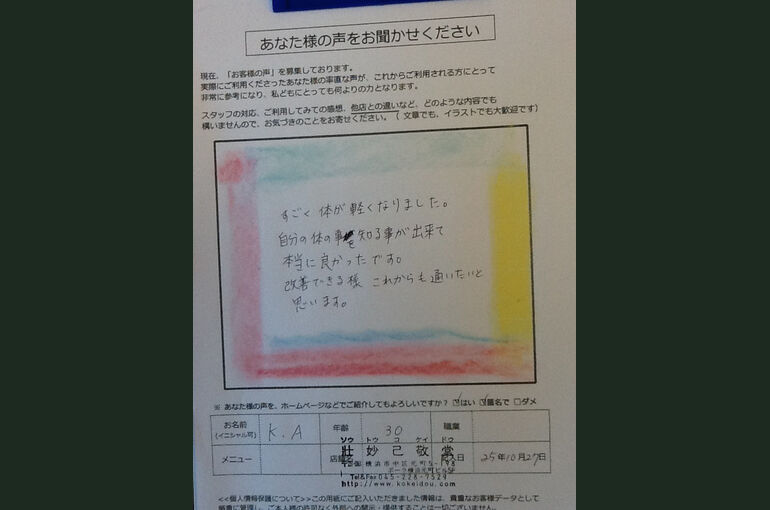 あなた様の声をお聞かせください
現在、「お客様の声」を募集しております。
実際にご利用くださったあなた様の率直な声が、これからご利用される方にとって
非常に参考になり、私どもにとっても何よりの力となります。
スタッフの対応、ご利用してみての感想、他店との違いなど、どのような内容でも
構いませんので、お気づきのことをお寄せください。（文章でも、イラストでも大歓迎です）
すごく 体が軽くなりました。
自分の体の事を知る事が出来て
本当に良かったです。
改善できる様 これからも通いたいと
思います。
※ あなた様の声を、ホームページなどでご紹介してもよろしいですか？ ☑はい ☑匿名で □ダメ
お名前 K.A 年齢 30 職業
(イニシャル可)
ソウ トウ コ ケイ ドウ
壮妙己敬堂
メニュー 記入日 25年10月27日
横浜市中区元町5-198
Tel&Fax045-228-7529
http://www.kokeidou.com
<<個人情報保護について>>この用紙にご記入いただきました情報は、貴重なお客様データとして
厳重に管理し、ご本人様の許可なく外部への開示・提供することは一切ございません。